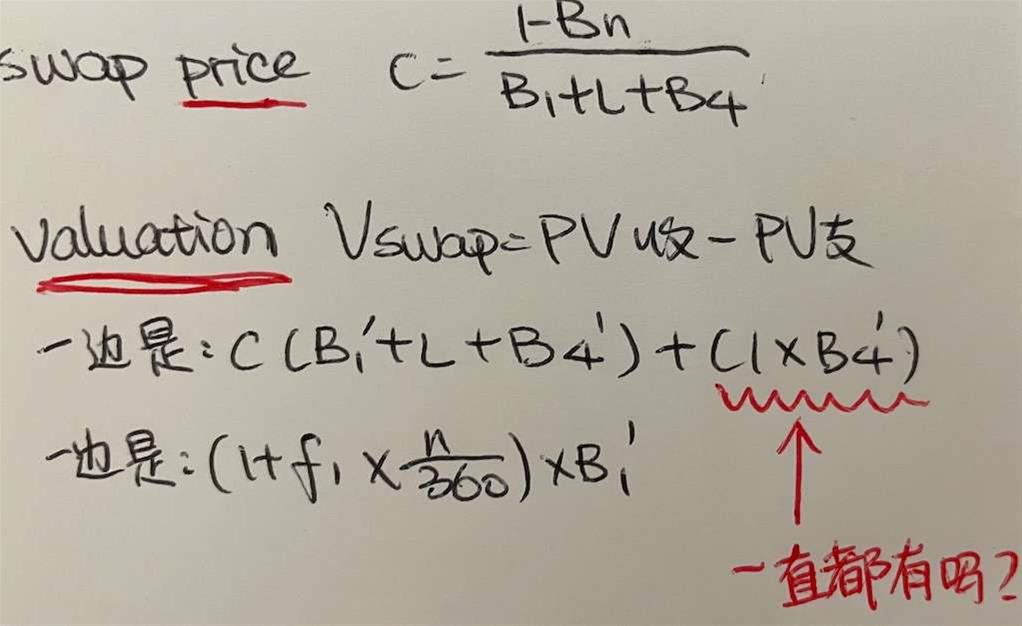 swap price C = 1-Bn / B1+L+B4
valuation Vswap = PV收 - PV支
一边是: C (B1'+L+B4') + (1×B4')
一边是: (1+f1 × n/360) × B1'
一直都有吗?